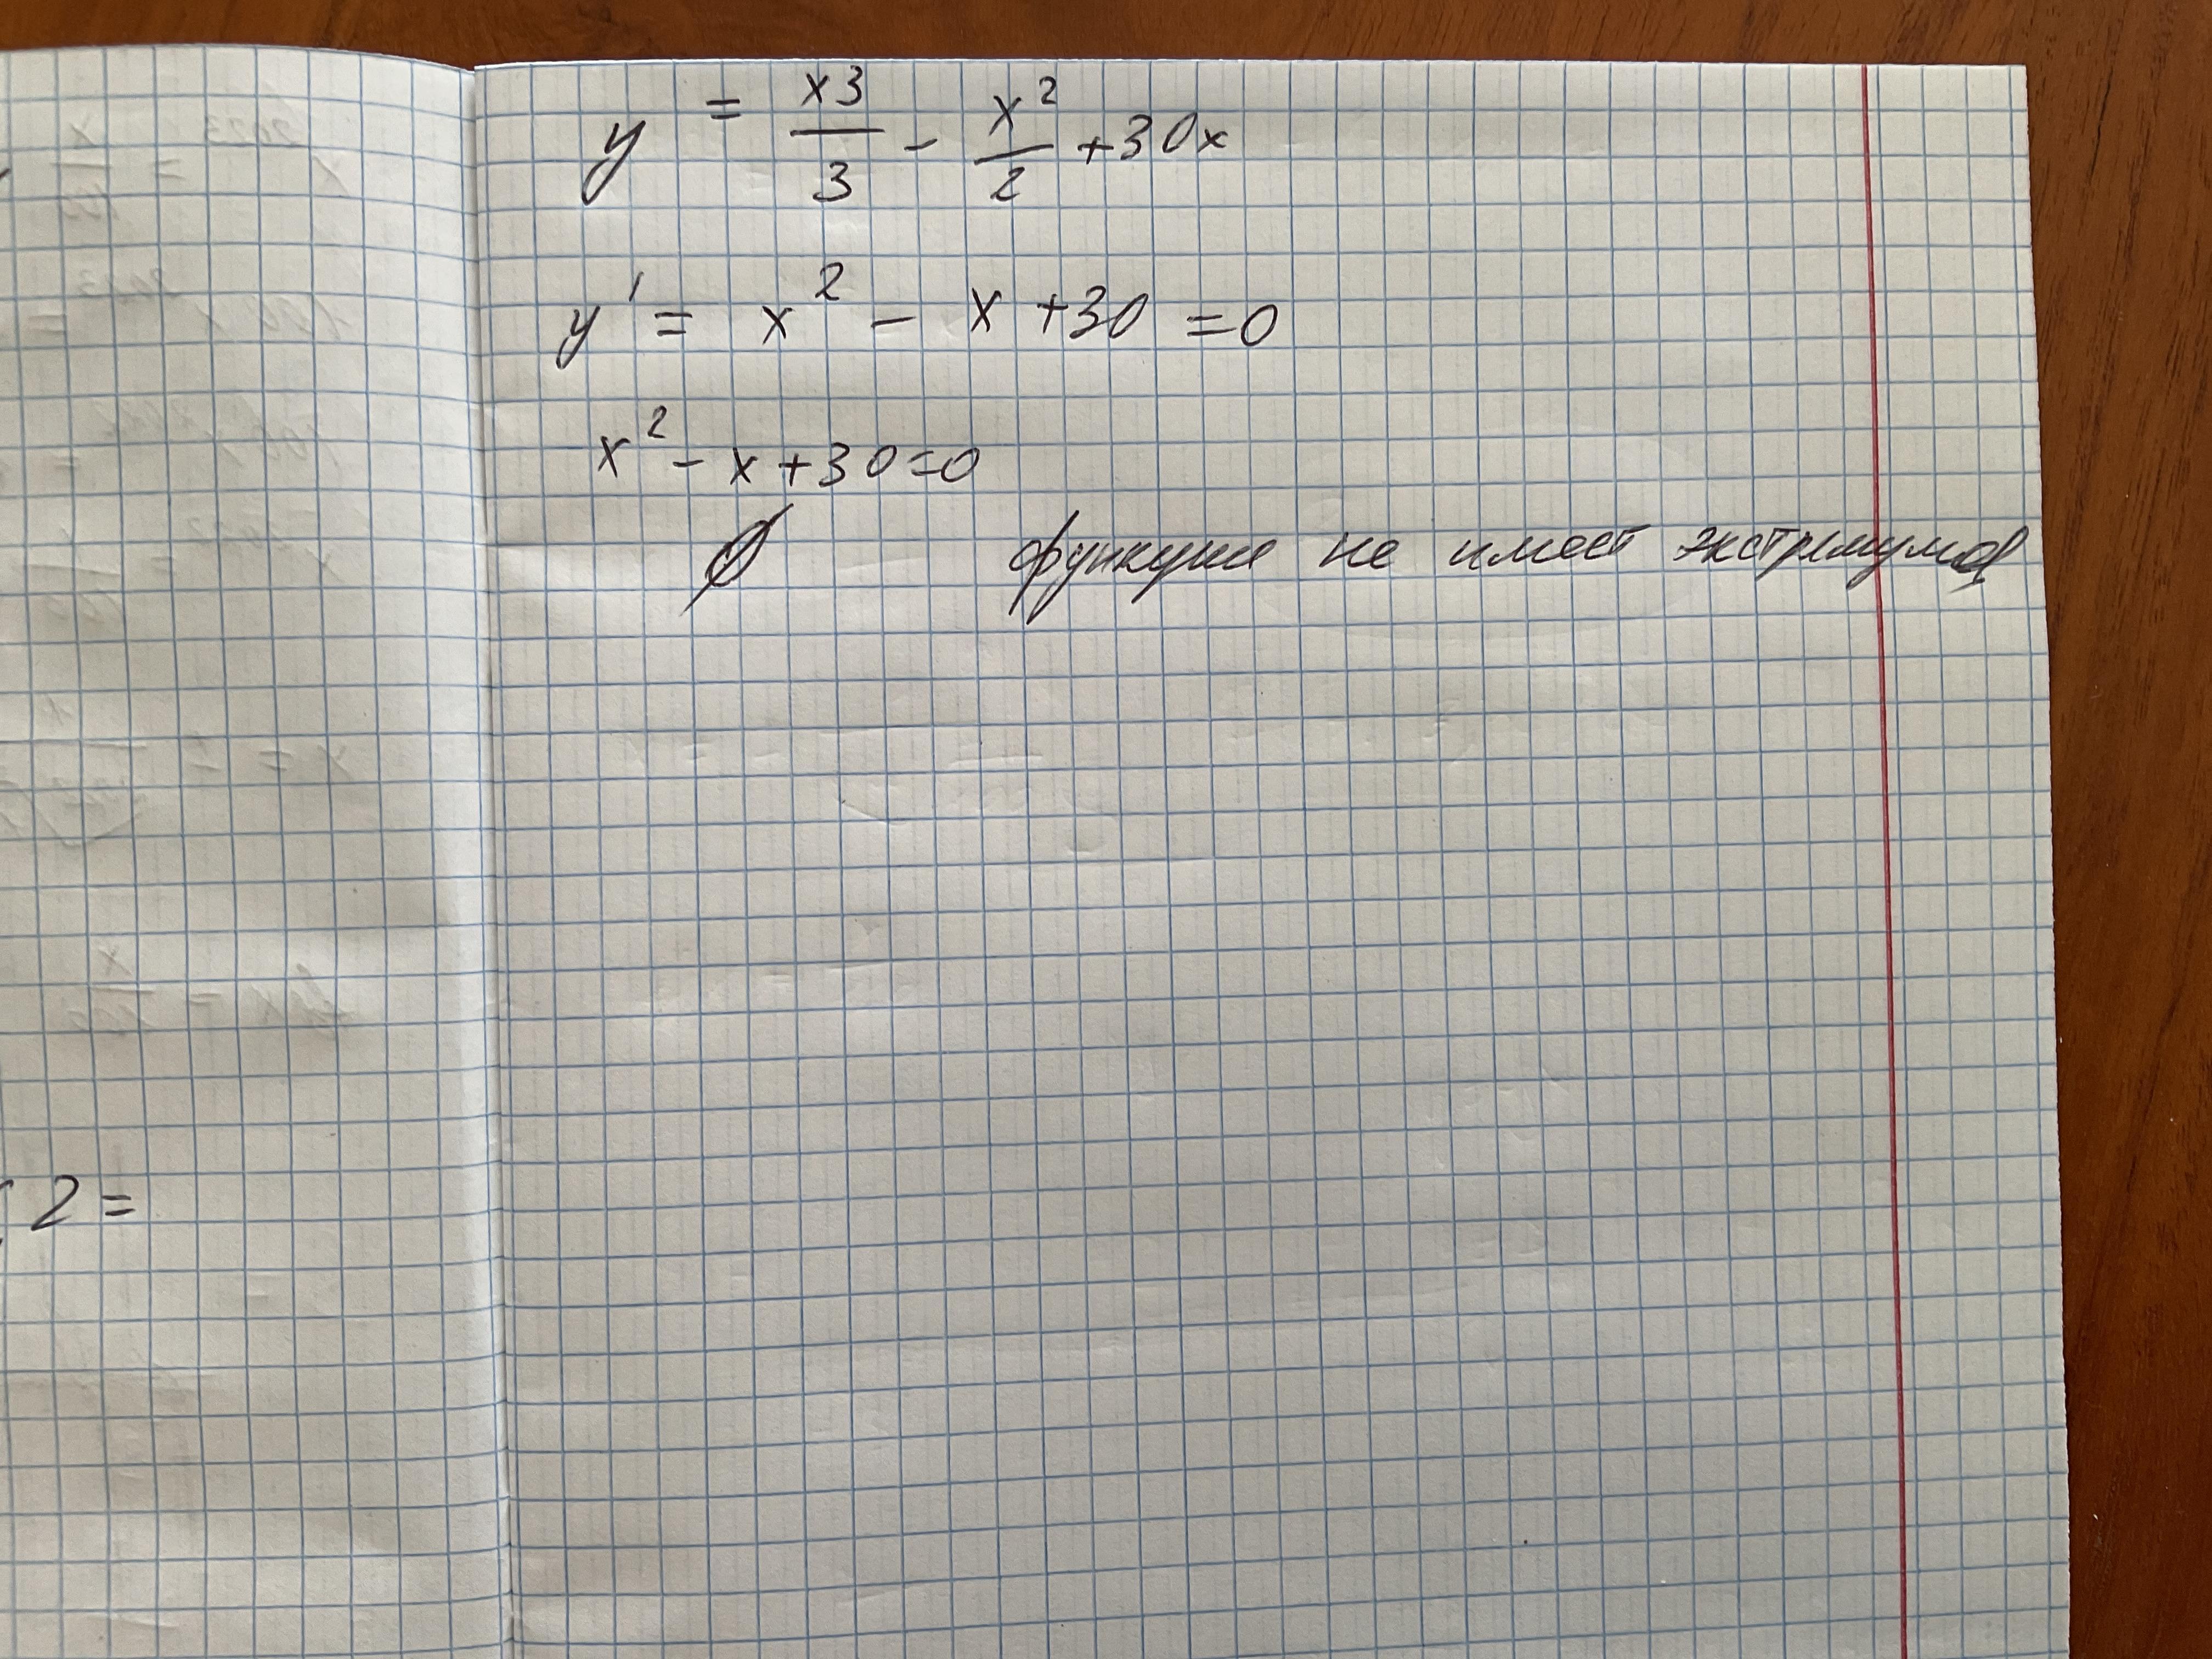 y = x3/3 - x²/2 + 30x
y' = x² - x + 30 = 0
x² - x + 30 = 0
∅ функция не имеет экстремумов
2 =